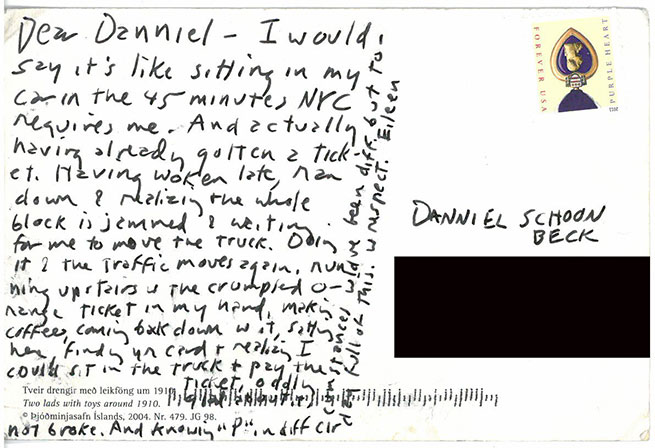 Dear Danniel – I would
say it's like sitting in my
car in the 45 minutes NYC
requires me. And actually
having already gotten a tick-
et. Having woken late, ran
down & realizing the whole
block is jammed & waiting
for me to move the truck. Doing
it & the traffic moves again, run-
ning upstairs w the crumpled o-
range ticket in my hand, making
coffee, coming back down w it, sitting
here, finding yr card & realizing I
could sit in the truck & pay the
ticket, oddly
glad about it
not broke. And knowing "P" in diff cir
cumstances would've been diff. but to
day full of this. w respect. Eileen
FOREVER USA
PURPLE HEART
DANNIEL SCHOON
BECK
Tveir drengir með leikföng um 1910.
Two lads with toys around 1910.
© Þjóðminjasafn Íslands, 2004. Nr. 479. JG 98.